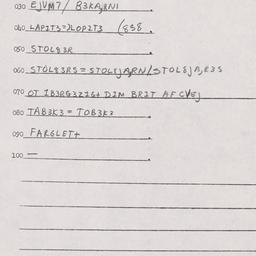 030 EJVM7/ 83KAJRNI
040 LAPIT3=)LOPIT3 (858.
050 STOL83R
060 STOL83RS = STOL8JAJRN/STOL8JAJR3S
070 OT IB3RG3ZIG+ DIM BRIT AF CVEJ
080 TAB3K3 = TOB3K3
090 FARGLET+
100 —